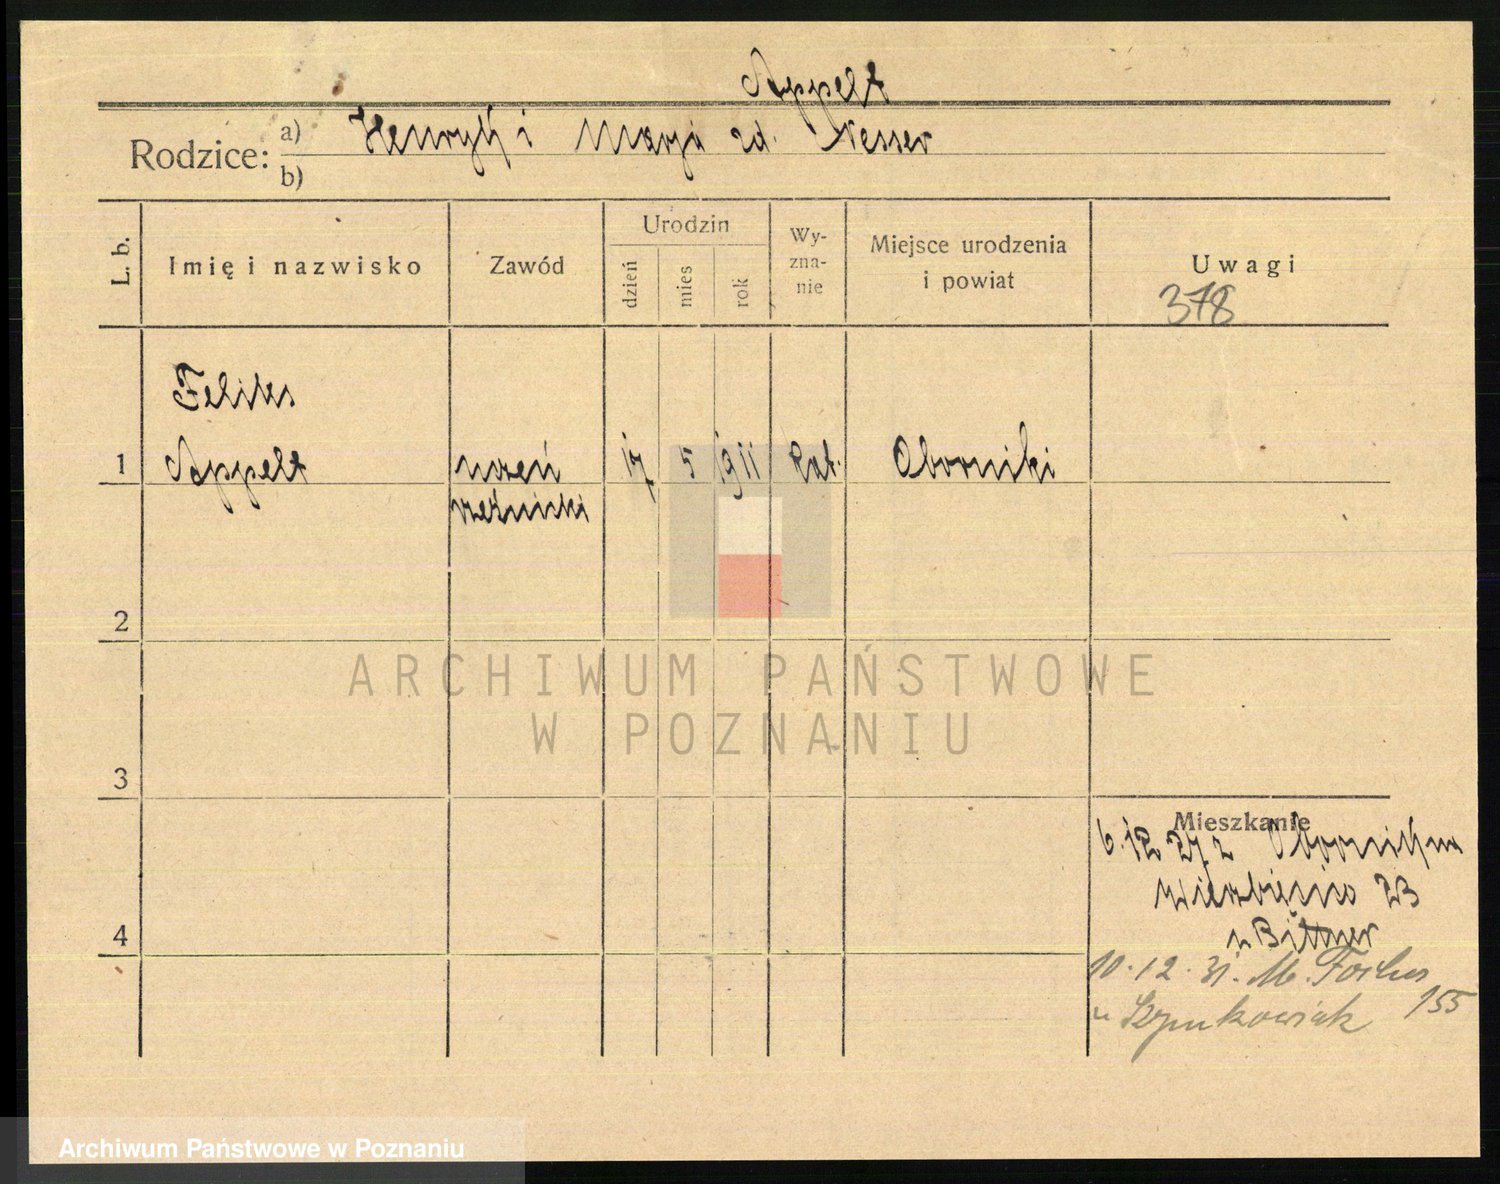 Appelt
Rodzice: a) Henryk i Marja zd. Nesser
b)
L. b. Imię i nazwisko Zawód Urodzin dzień mies rok Wyznanie Miejsce urodzenia i powiat Uwagi
378
Feliks
1 Appelt uczeń 17 5 1911 kat. Oborniki
rzeźnicki
2
ARCHIWUM PAŃSTWOWE
W POZNANIU
3
Mieszkanie
6.12 27 z Obornik na
Wierzbięcice 23
4
u Bittner
10.12.31. M. Focha 155
u Szymkowiak
Archiwum Państwowe w Poznaniu